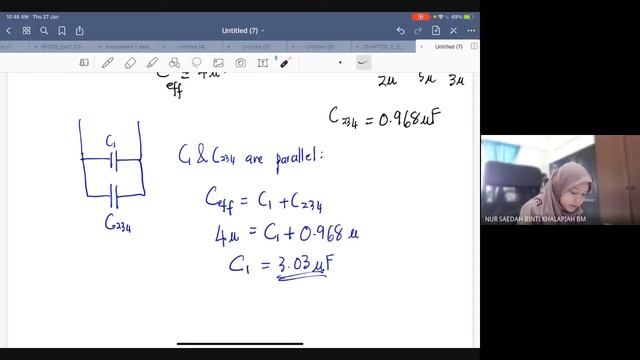 10:45 AM Thu 27 Jan
69%
Untitled (7)
Experiment 7 data
Untitled (4)
Untitled (5)
Untitled (6)
Untitled (7)
Ceff = 4μ
2μ 5μ 3μ
C234 = 0.968μF
C1
C234
C1 & C234 are parallel:
Ceff = C1 + C234
4μ = C1 + 0.968 μ
C1 = 3.03 μF
NUR SAEDAH BINTI KHALAPIAH BM